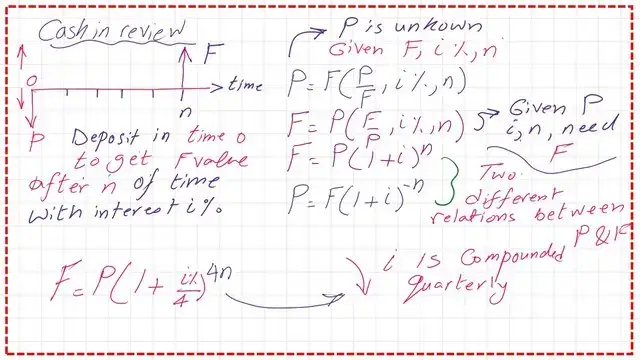 Cash in review
F
0
time
n
P
Deposit in time 0
to get F value
after n of time
with interest i%.
P is unkown
Given F, i%, n
P = F(P/F, i%, n)
F = P(F/P, i%, n)
F = P(1+i)^n
P = F(1+i)^-n
Given P
i, n, need
F
Two
different
relations between
P & F
F = P(1 + i%/4)^4n
i is compounded
quarterly